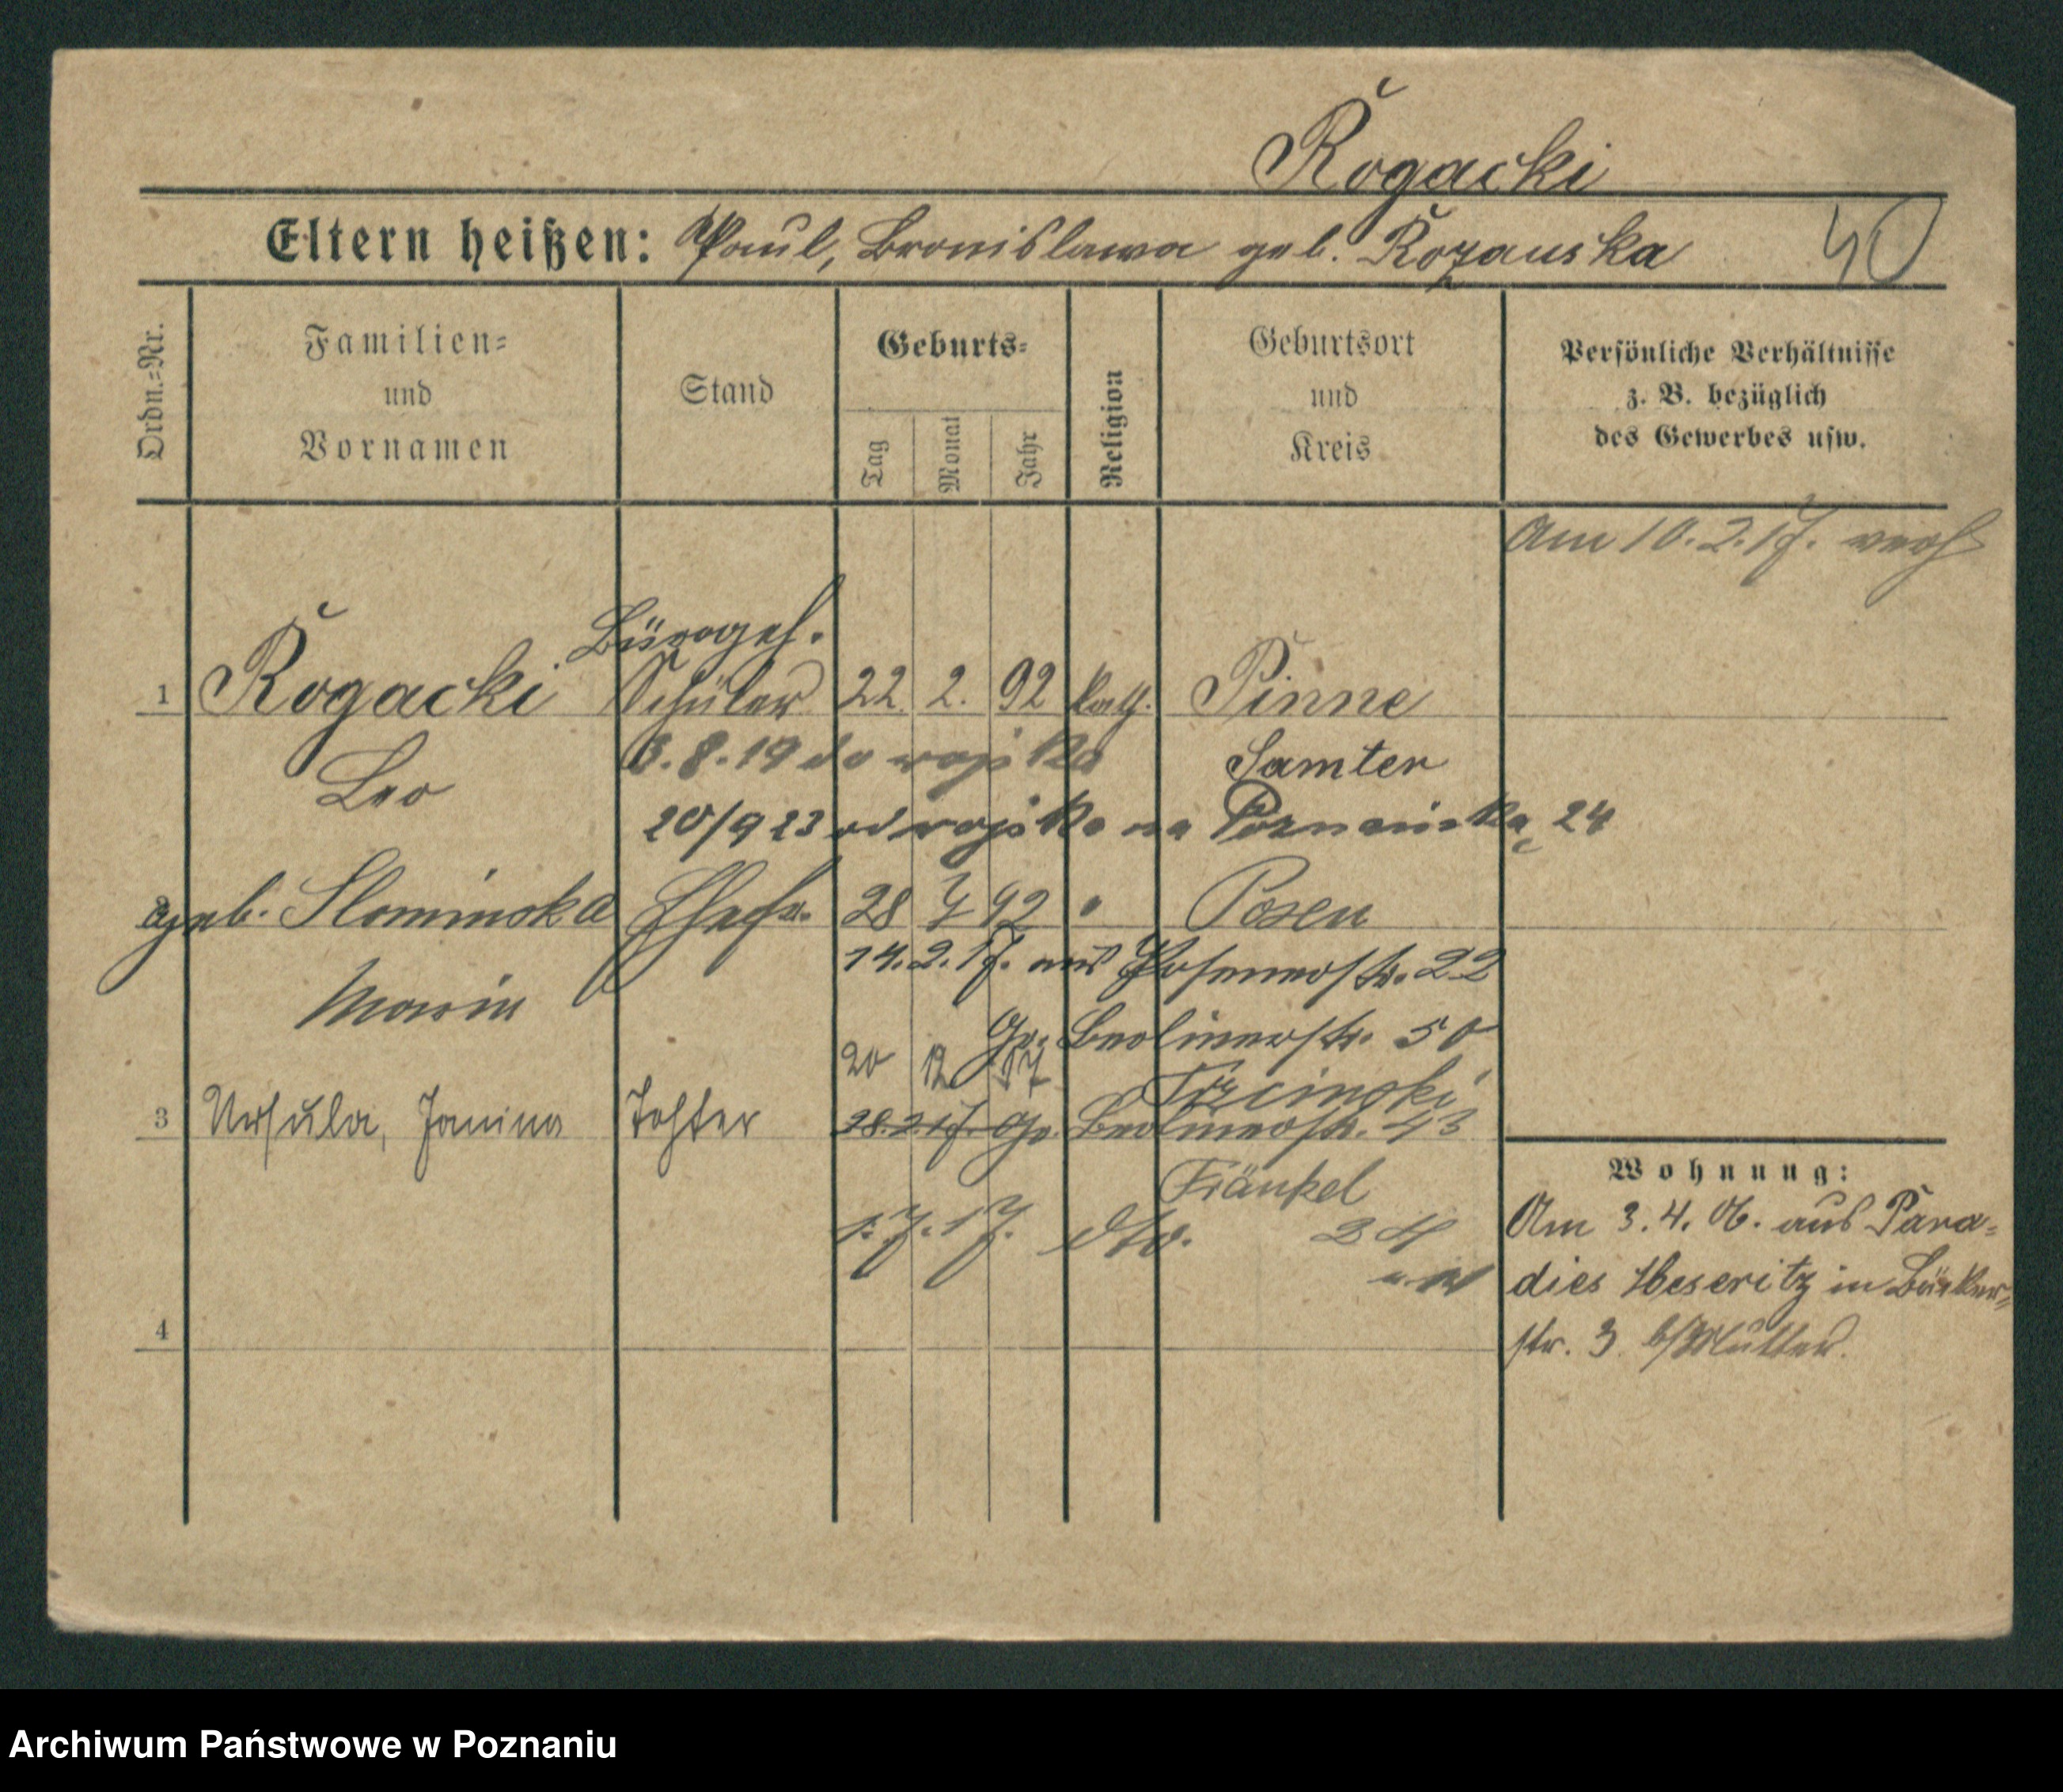 Rogacki
Eltern heißen: Paul, Bronislawa geb. Rozanska
40
Ordn.=Nr.
Familien=
und
Vornamen
Stand
Geburts=
Tag
Monat
Jahr
Religion
Geburtsort
und
Kreis
Persönliche Verhältnisse
z. B. bezüglich
des Gewerbes usw.
Am 10.2.17. verh
Bürogeh.
1 Rogacki Schüler 22. 2. 92 kath. Pinne
Leo 6.8.19 do wojska Samter
20/9 23 od wojska na Poznańską 24
2 geb. Slominska Ehefr. 28 7 92 " Posen
14.2.17. aus Posenerstr. 22
Maria
Gr. Berlinerstr. 50
20 12 17 Trzcinski
3 Ursula, Janina Tochter 28.2.17. Gr. Berlinerstr. 43
Fränkel
1.7.17. dto. 34
4
Wohnung:
Am 3.4.06. aus Para=
dies Meseritz in Bäcker=
str. 3 b/Mutter.
Archiwum Państwowe w Poznaniu